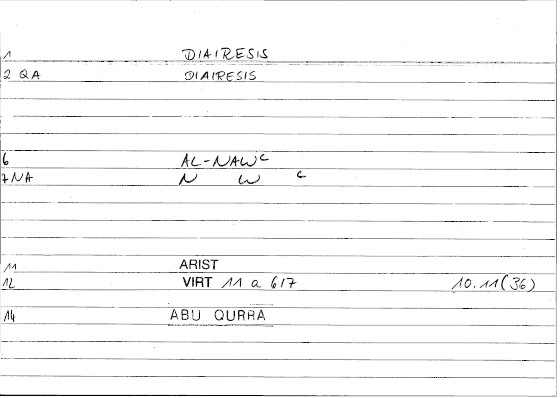 1 DIAIRESIS
2 QA DIAIRESIS
6 AL-NAWᶜ
7 NA N W ᶜ
11 ARIST
12 VIRT 11 a 6/7 10.11(36)
14 ABU QURRA